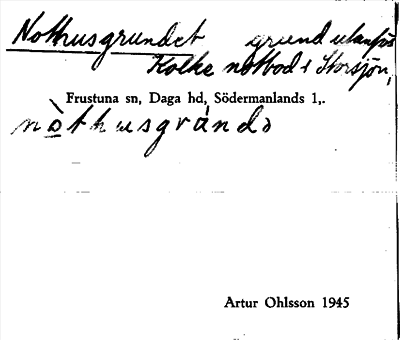 Nothusgrundet grund utanför
Kolke notbod i Storsjön,
Frustuna sn, Daga hd, Södermanlands 1,.
nòthusgrándə
Artur Ohlsson 1945